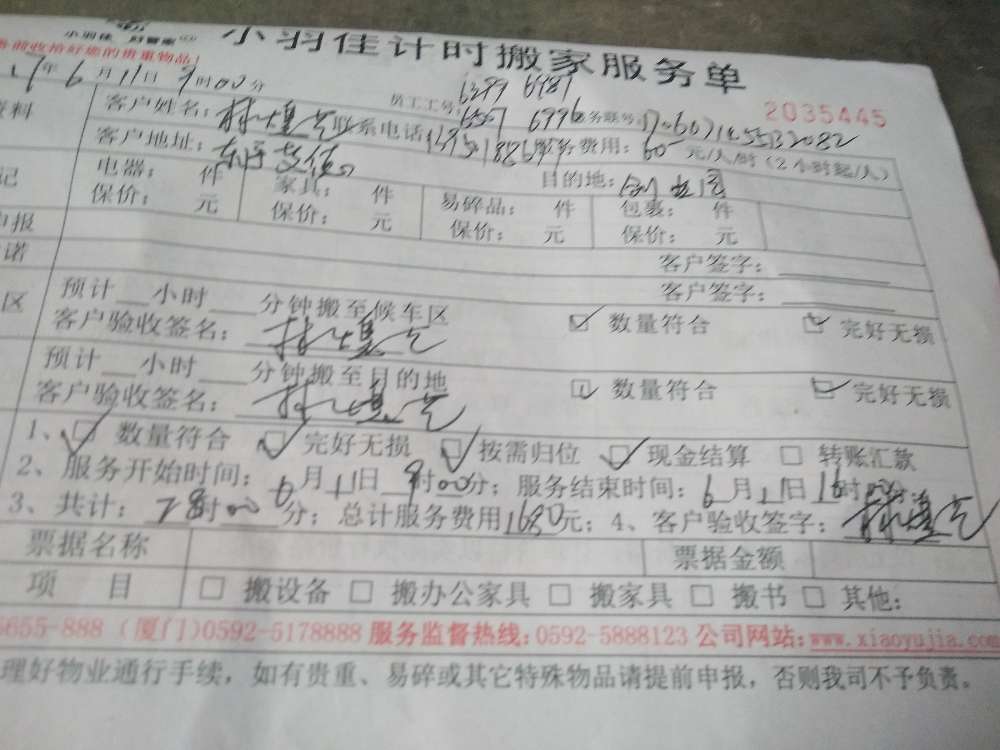 小羽佳 好管家
小羽佳计时搬家服务单
务前收拾好您的贵重物品!
2035445
17年6月11日9时00分
员工工号: 6299 6981
6507 6996
客户姓名: 联系电话
服务费用: 60 元/人/时(2小时起/人)
客户地址: 目的地:
电器: 件 家具: 件 易碎品: 件 包裹: 件
保价: 元 保价: 元 保价: 元 保价: 元
客户签字:
客户签字:
预计 小时 分钟搬至候车区
客户验收签名: 数量符合 完好无损
预计 小时 分钟搬至目的地
客户验收签名: 数量符合 完好无损
1、 数量符合 完好无损 按需归位 现金结算 转账汇款
2、服务开始时间: 6月11日9时00分; 服务结束时间: 6月11日16时
3、共计: 28时00分; 总计服务费用1680元; 4、客户验收签字:
票据名称 票据金额
项目 搬设备 搬办公家具 搬家具 搬书 其他:
5655-888 (厦门)0592-5178888 服务监督热线:0592-5888123 公司网站:www.xiaoyujia.com
理好物业通行手续,如有贵重、易碎或其它特殊物品请提前申报,否则我司不予负责。